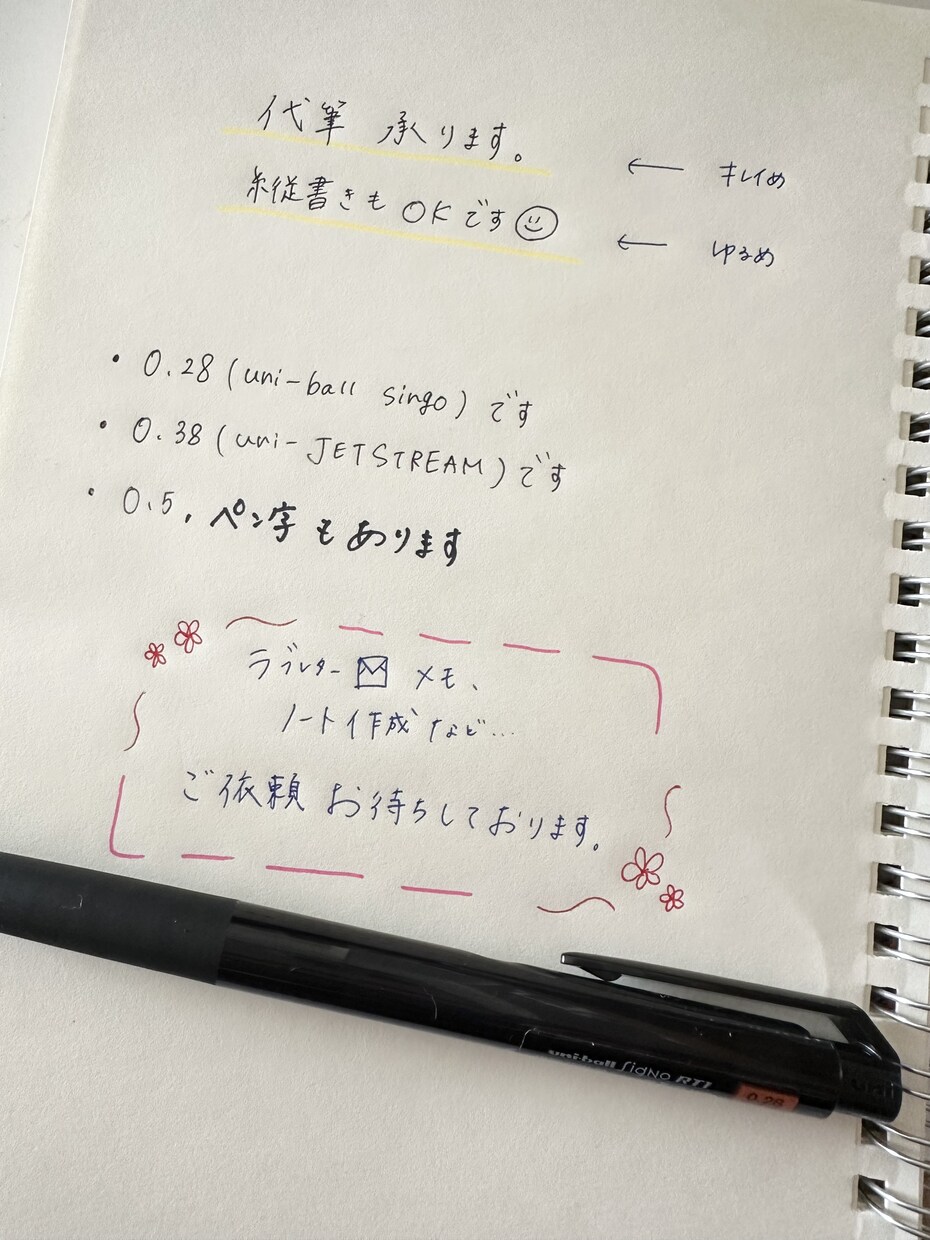 代筆 承ります。 ← キレイめ
縦書きも OKです ← ゆるめ
・0.28 (uni-ball singo) です
・0.38 (uni-JETSTREAM) です
・0.5, ペン字もあります
ラブレター メモ、
ノート作成など...
ご依頼お待ちしております。
uni-ball SigNo RT1
0.28
uni